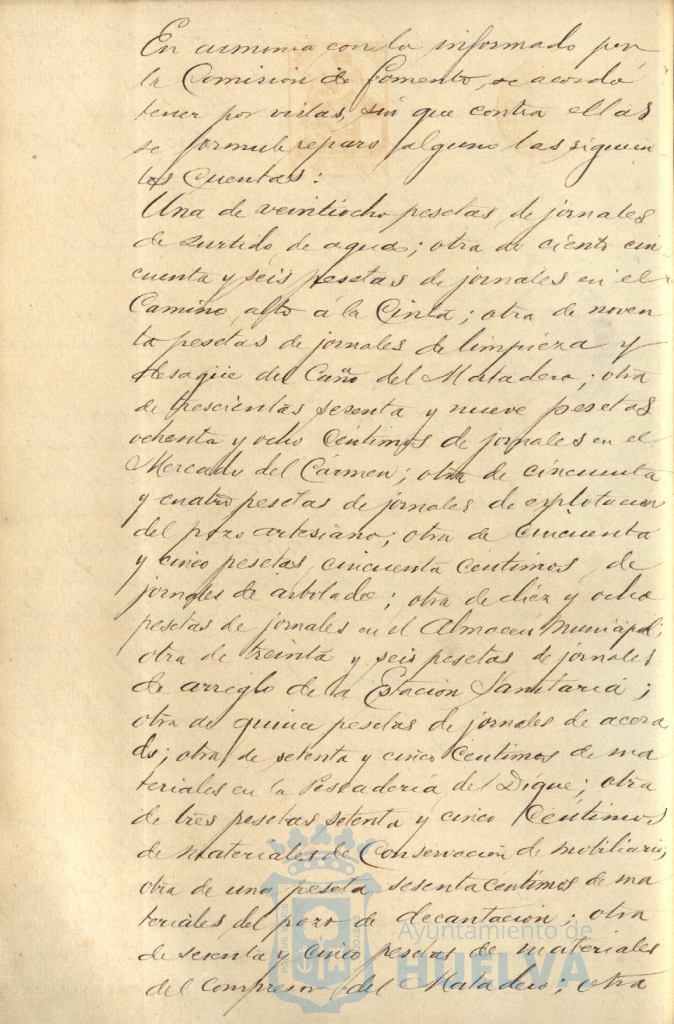 En armonia con lo informado por
la Comision de Fomento, se acordó
tener por vistas, sin que contra ellas
se formule reparo alguno las siguien
tes Cuentas:
Una de veintiocho pesetas de jornales
de surtido de agua; otra de ciento cin
cuenta y seis pesetas de jornales en el
Camino alto á la Cinta; otra de noven
ta pesetas de jornales de limpieza y
desagüe del Caño del Matadero; otra
de trescientas sesenta y nueve pesetas
ochenta y ocho Céntimos de jornales en el
Mercado del Cármen; otra de cincuenta
y cuatro pesetas de jornales de explotacion
del pozo artesiano; otra de cincuenta
y cinco pesetas, cincuenta centimos, de
jornales de arbolado; otra de diez y ocho
pesetas de jornales en el Almacen Municipal;
otra de treinta y seis pesetas de jornales
de arreglo de la Estacion Sanitaria;
otra de quince pesetas de jornales de acera
do; otra de setenta y cinco Centimos de ma
teriales en la Pescaderia del Dique; otra
de tres pesetas setenta y cinco Céntimos
de materiales de Conservacion de mobiliario;
otra de una peseta sesenta centimos de ma
teriales del pozo de decantacion; otra
de sesenta y cinco pesetas de materiales
del Compresor del Matadero; otra
Ayuntamiento de
HUELVA